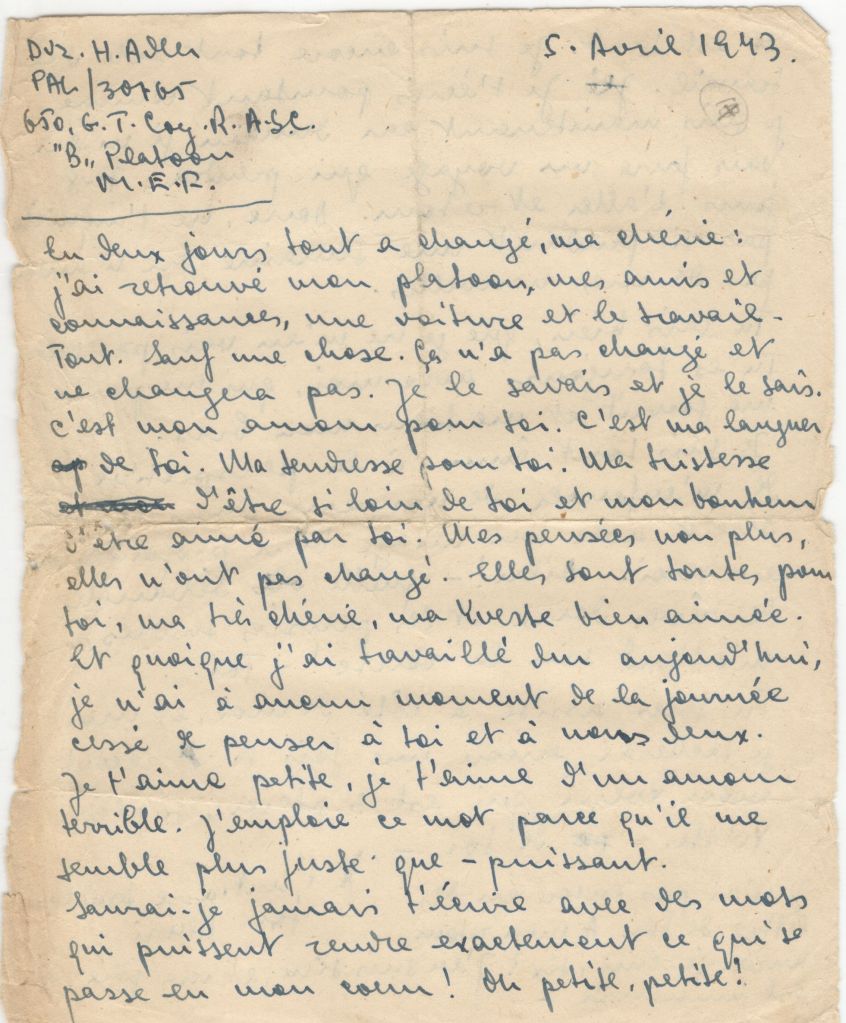 Dvr. H. Adler
5. Avril 1943.
PAL/30765
650, G. T. Coy. R.A.S.C.
"B" Platoon
M.E.F.
En deux jours tout a changé, ma chérie :
j'ai retrouvé mon platoon, mes amis et
connaissances, une voiture et le travail -
Tout. Sauf une chose. Ça n'a pas changé et
ne changera pas. Je le savais et je le sais.
C'est mon amour pour toi. C'est ma langueur
de toi. Ma tendresse pour toi. Ma tristesse
d'être si loin de toi et mon bonheur
d'être aimé par toi. Mes pensées non plus,
elles n'ont pas changé. Elles sont toutes pour
toi, ma très chérie, ma Yvette bien aimée.
Et quoique j'ai travaillé dur aujourd'hui,
je n'ai à aucun moment de la journée
cessé de penser à toi et à nous deux.
Je t'aime petite, je t'aime d'un amour
terrible. J'emploie ce mot parce qu'il me
semble plus juste que - puissant.
Saurai-je jamais t'écrire avec des mots
qui puissent rendre exactement ce qui se
passe en mon coeur ! Oh petite, petite !